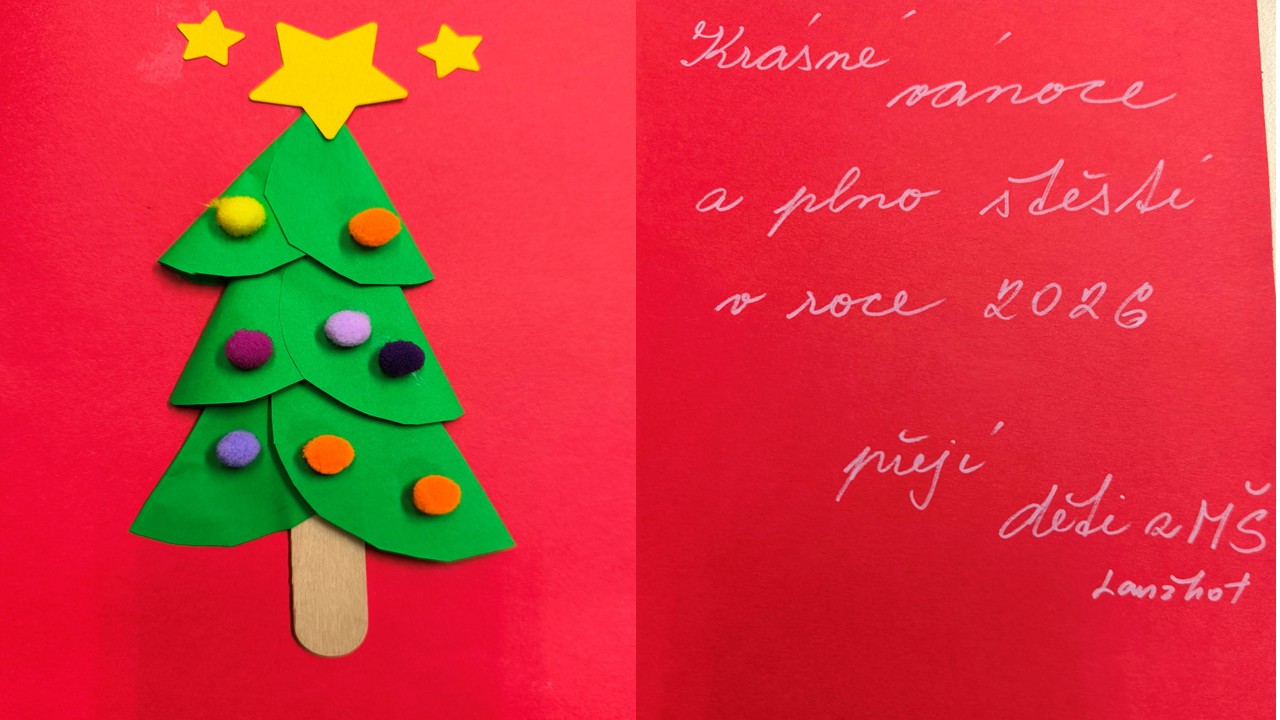 Krásné
vánoce
a plno štěstí
v roce 2026
přejí
děti z MŠ
Lanžhot